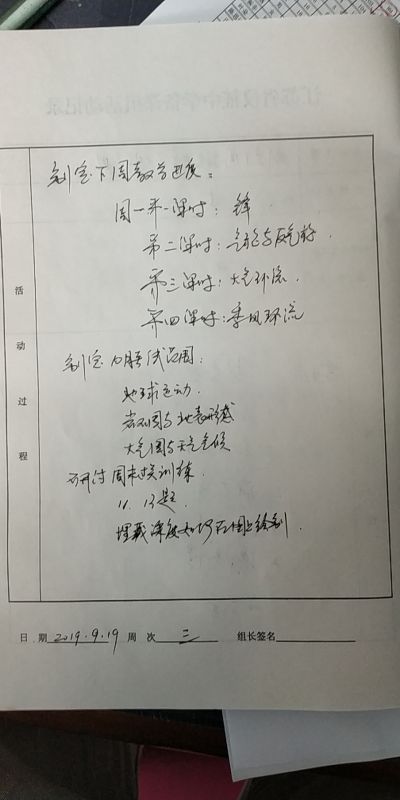 制定下周教学进度：
周一第一课时：锋
第二课时：气旋与反气旋
第三课时：大气环流.
第四课时：季风环流
制定八校联考范围:
地球运动.
岩石圈与地表形态
大气圈与天气气候
研讨周末提升训练.
11. 13题.
埋藏深度如何在图上绘制.
活动过程
日 期 2019.9.19 周 次 三 组长签名